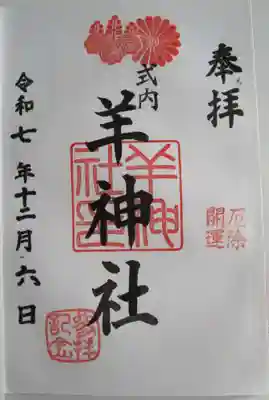 奉拝
厄除
開運
式内
羊神社
羊神
社印
令和七年十二月六日
参拝
記念